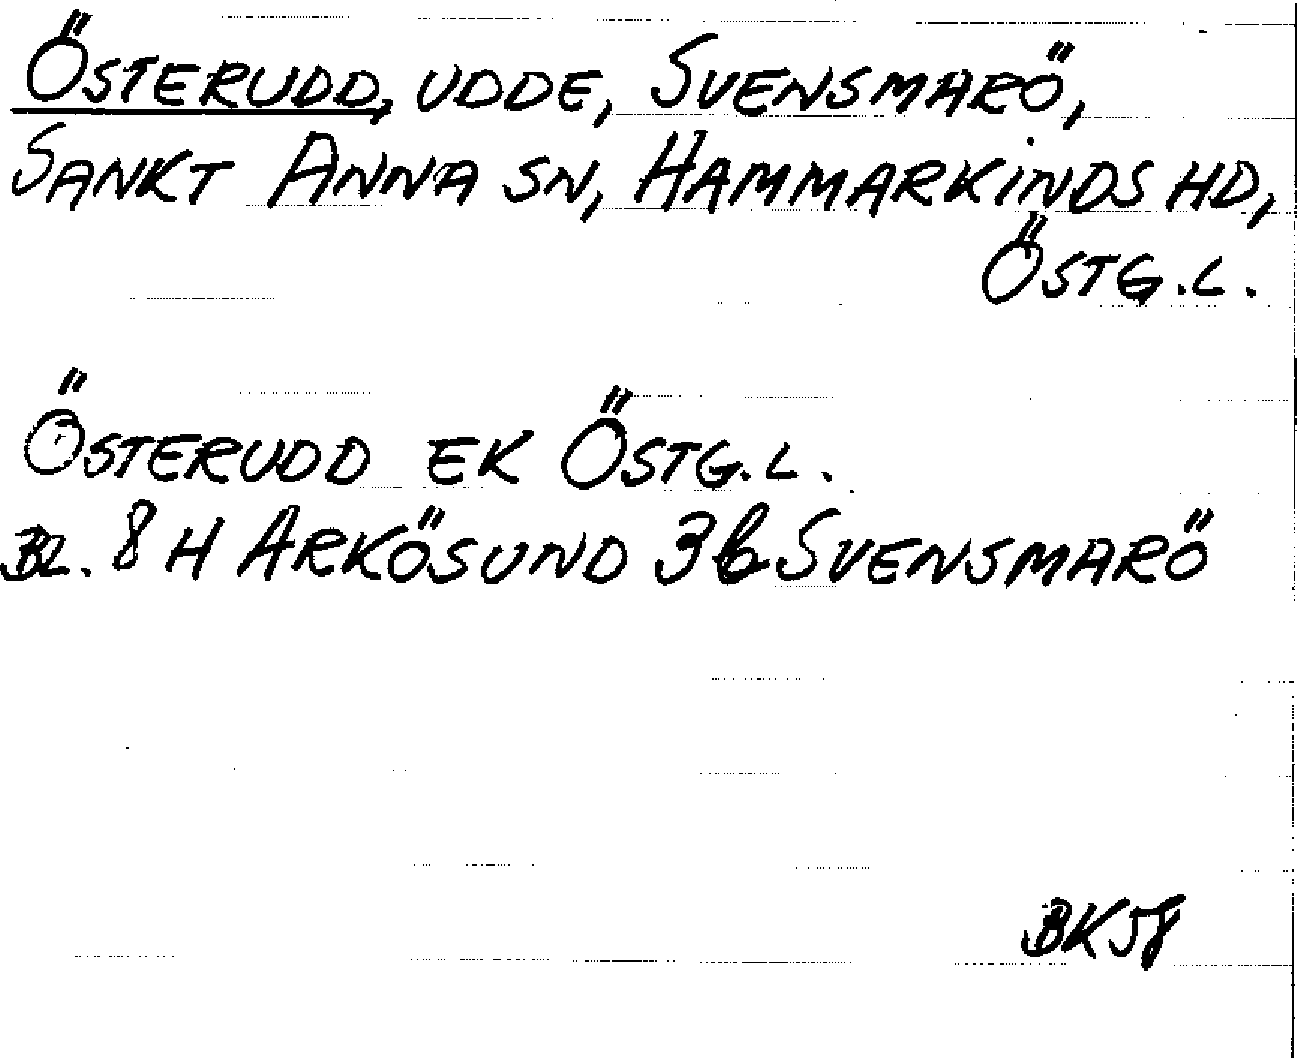 ÖSTERUDD, UDDE, SVENSMARÖ,
SANKT ANNA SN, HAMMARKINDS HD,
ÖSTG.L.
ÖSTERUDD EK ÖSTG.L.
BL. 8 H ARKÖSUND 3b SVENSMARÖ
BK58